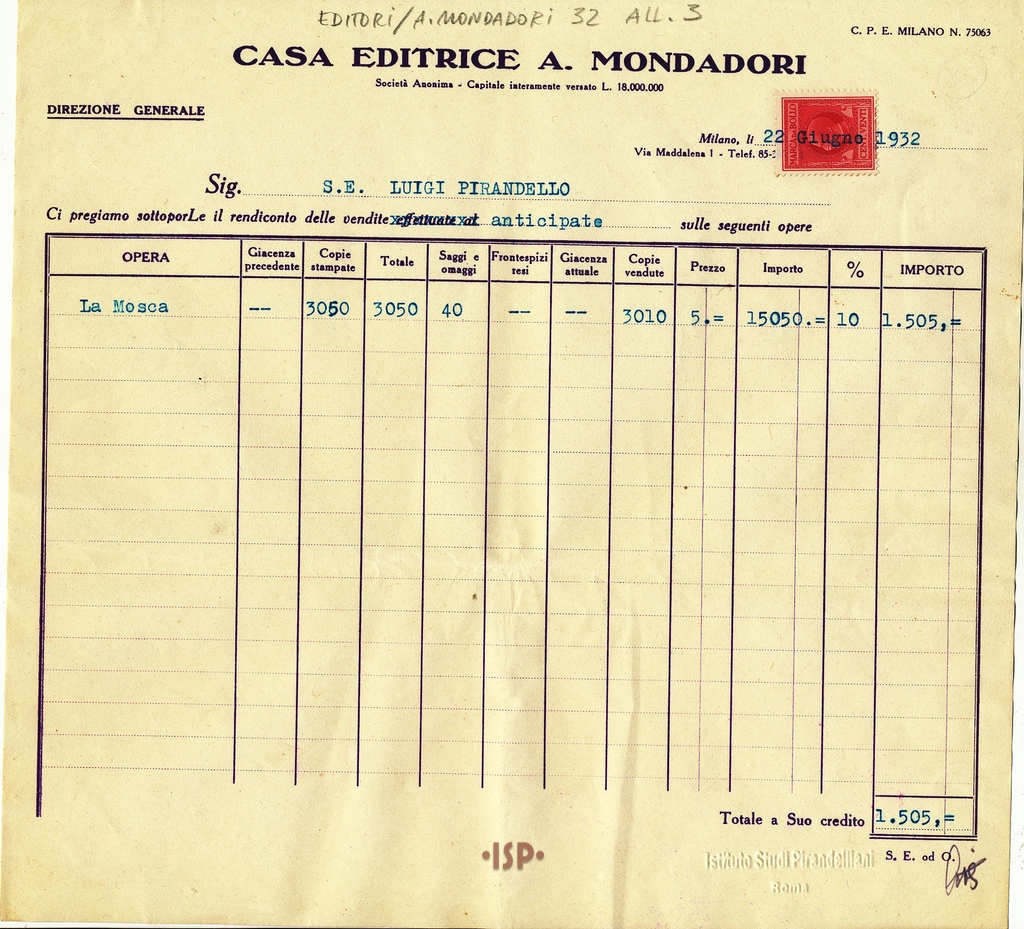 EDITORI/A. MONDADORI 32 ALL. 3
C. P. E. MILANO N. 75063
CASA EDITRICE A. MONDADORI
Società Anonima - Capitale interamente versato L. 18.000.000
DIREZIONE GENERALE
MARCA DA BOLLO
Milano, li 22 Giugno 1932
Via Maddalena 1 - Telef. 85-
Sig. S.E. LUIGI PIRANDELLO
Ci pregiamo sottoporLe il rendiconto delle vendite effettuate al anticipate sulle seguenti opere
OPERA Giacenza precedente Copie stampate Totale Saggi e omaggi Frontespizi resi Giacenza attuale Copie vendute Prezzo Importo % IMPORTO
La Mosca -- 3050 3050 40 -- -- 3010 5.= 15050.= 10 1.505,=
Totale a Suo credito 1.505,=
S. E. od O.
•ISP•
Istituto Studi Pirandelliani
Roma